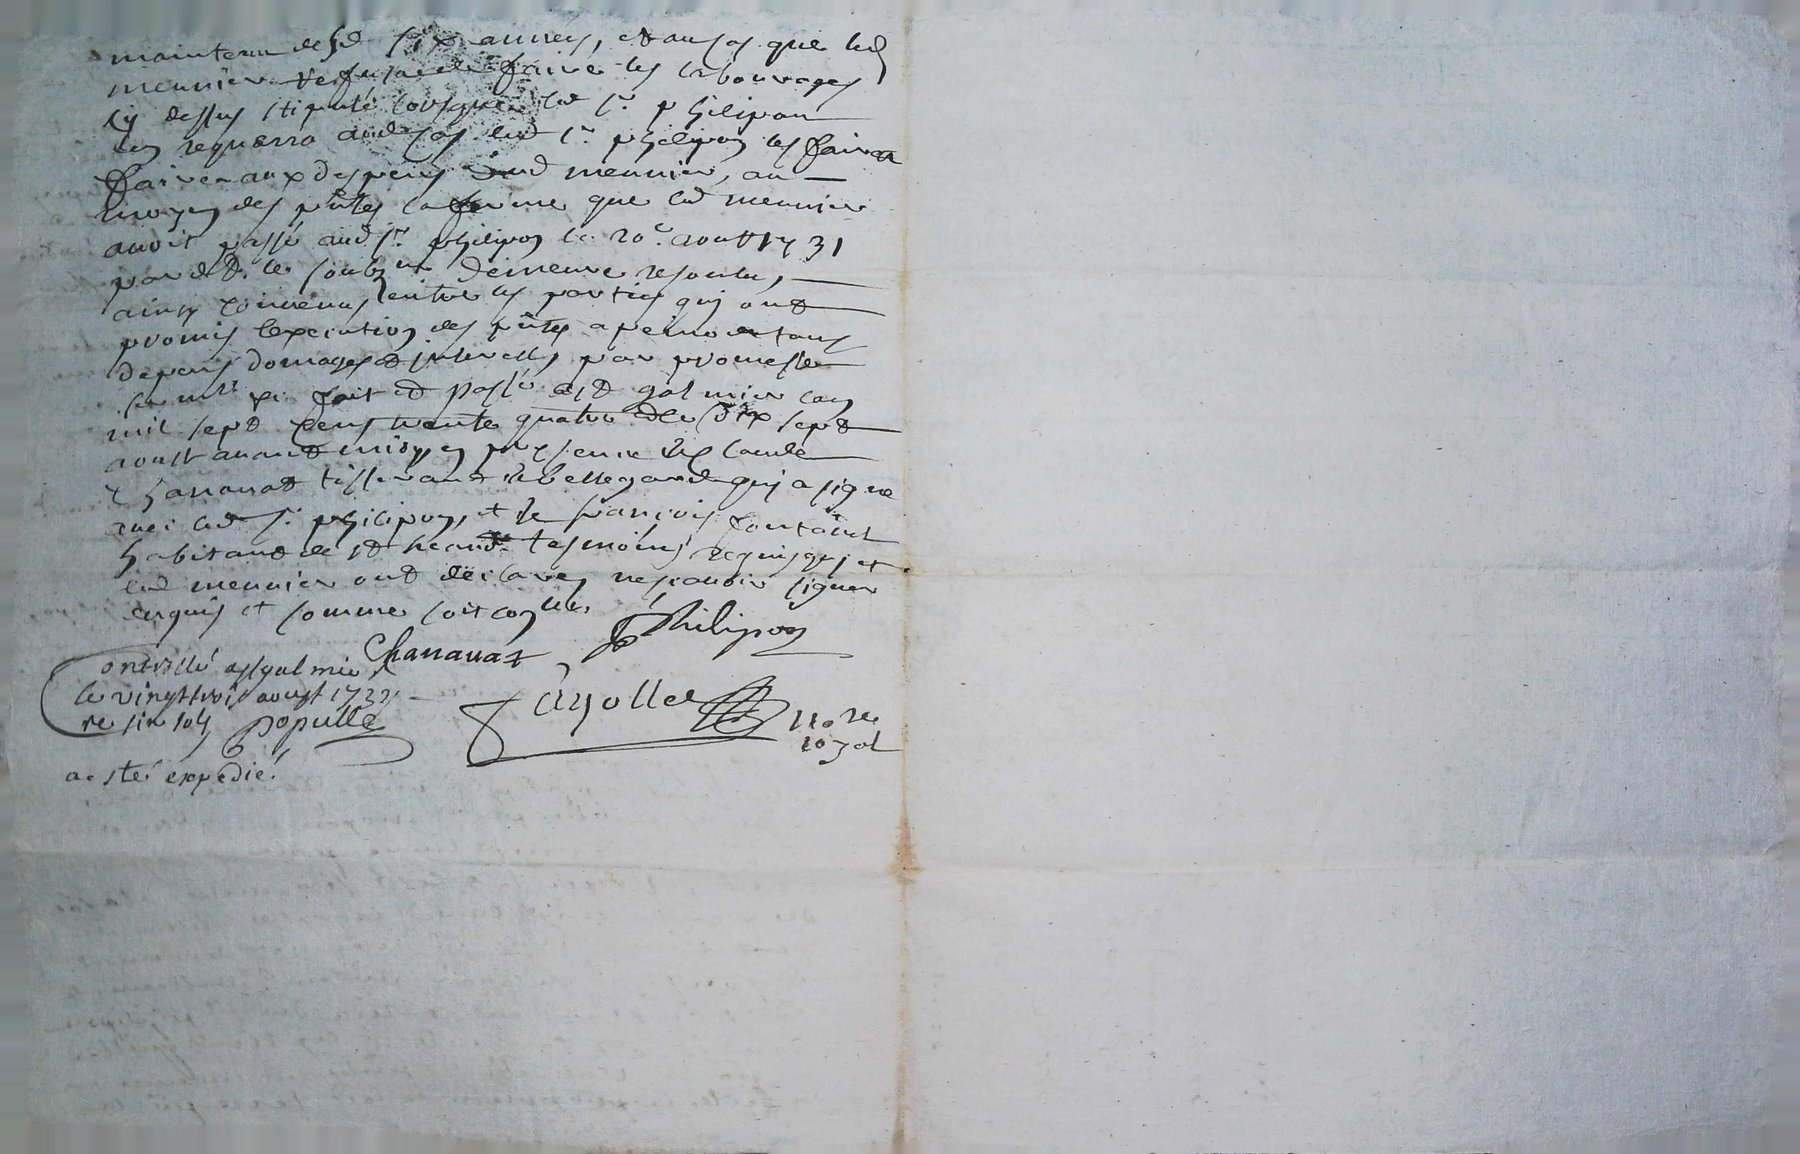 maintenu desd six années, et au cas que led
meunier refusat de faire les labourages
cy dessus stipulé lorsque led Sr philipon
l'en requerra aud cas led Sr philipon les faira
faire aux despens dud meunier, au
moyen des pntes la ferme que led meunier
avoit passé aud Sr philipon le 20e aout 1731
par dt le soubz né demeure resolue,
ainsy convenus entre les parties qui ont
promis l'execution des pntes a peine de tous
depens domages et interests par promesse
serment &c fait et passé a st galmier l'an
mil sept cens trente quatre et le dix sept
aoust avant midy en presence de Claude
Chanavat tisserant de bellegarde qui a signé
avec led Sr philipon, et de françois
habitant de st heand tesmoins requis qui et
led meunier ont declarés ne scavoir signer
enquis et sommé soit con lle
Philipon
Chanavat
Controllé a st galmier
le vingt trois aoust 173
re six sols populle
Fayolle
nore
royal
a esté expedié